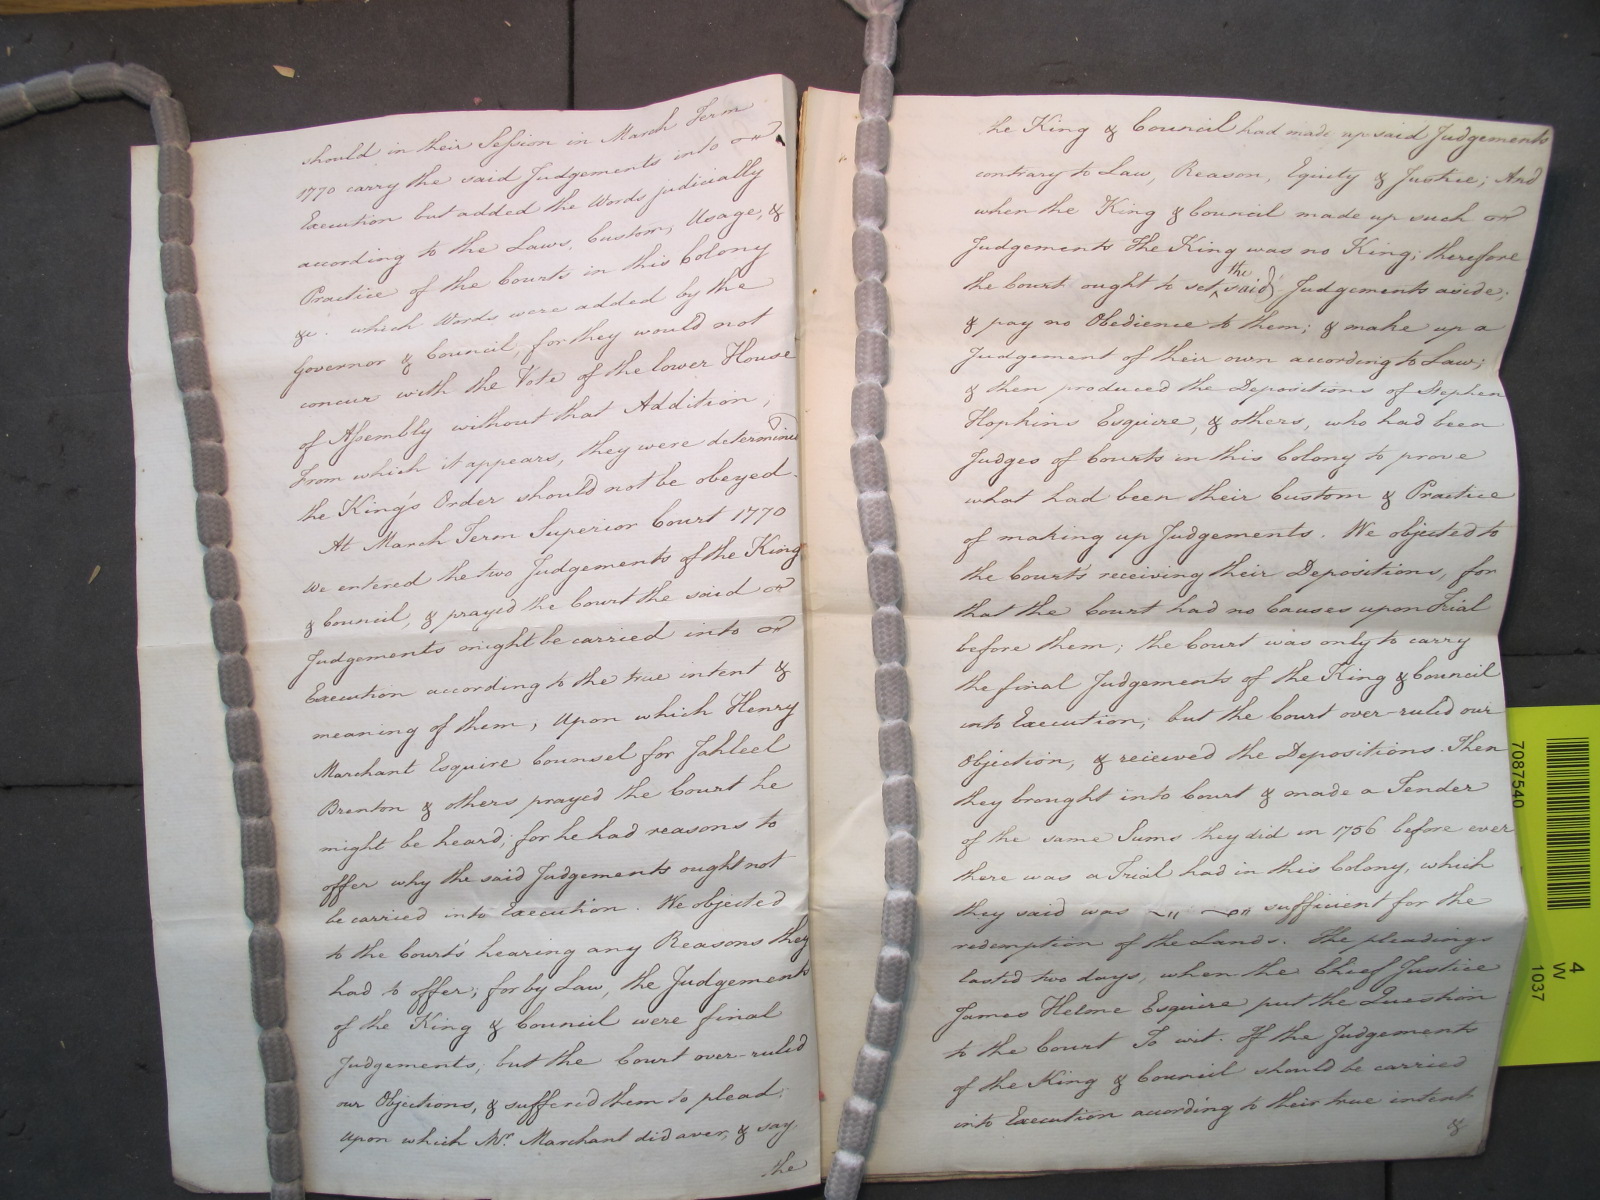 should in their Session in March Term
1770 carry the said Judgements into
Execution but added the Words judicially
according to the Laws, Custom, Usage, &
Practice of the Courts in this Colony
&c. which Words were added by the
Governor & Council, for they would not
concur with the Vote of the lower House
of Assembly without that Addition;
From which it appears, they were determined
the King's Order should not be obeyed.
At March Term Superior Court 1770
we entered the two Judgements of the King
& Council, & prayed the Court the said
Judgements might be carried into
Execution according to the true intent &
meaning of them, Upon which Henry
Marchant Esquire Counsel for Jahleel
Brenton & others prayed the Court he
might be heard; for he had reasons to
offer why the said Judgements ought not
be carried into Execution. We objected
to the Court's hearing any Reasons they
had to offer; for by Law, the Judgements
of the King & Council were final
Judgements; but the Court over-ruled
our Objections, & suffered them to plead;
Upon which Mr. Marchant did aver, & say,
the
the King & Council had made up said Judgements
contrary to Law, Reason, Equity & Justice; And
when the King & Council made up such
Judgements The King was no King; therefore
the Court ought to set the said Judgements aside;
& pay no Obedience to them; & make up a
Judgement of their own according to Law;
& then produced the Depositions of Stephen
Hopkins Esquire, & others, who had been
Judges of Courts in this Colony to prove
what had been their Custom & Practice
of making up Judgements. We objected to
the Court's receiving their Depositions, for
that the Court had no Causes upon Trial
before them; the Court was only to carry
the final Judgements of the King & Council
into Execution; but the Court over-ruled our
Objection, & received the Depositions. Then
they brought into Court & made a Tender
of the same Sums they did in 1756 before ever
there was a Trial had in this Colony, which
they said was sufficient for the
redemption of the Lands. The pleadings
lasted two days, when the Chief Justice
James Helme Esquire put the Question
to the Court To wit. If the Judgements
of the King & Council should be carried
into Execution acording to their true intent
&
7087540
4
W
1037